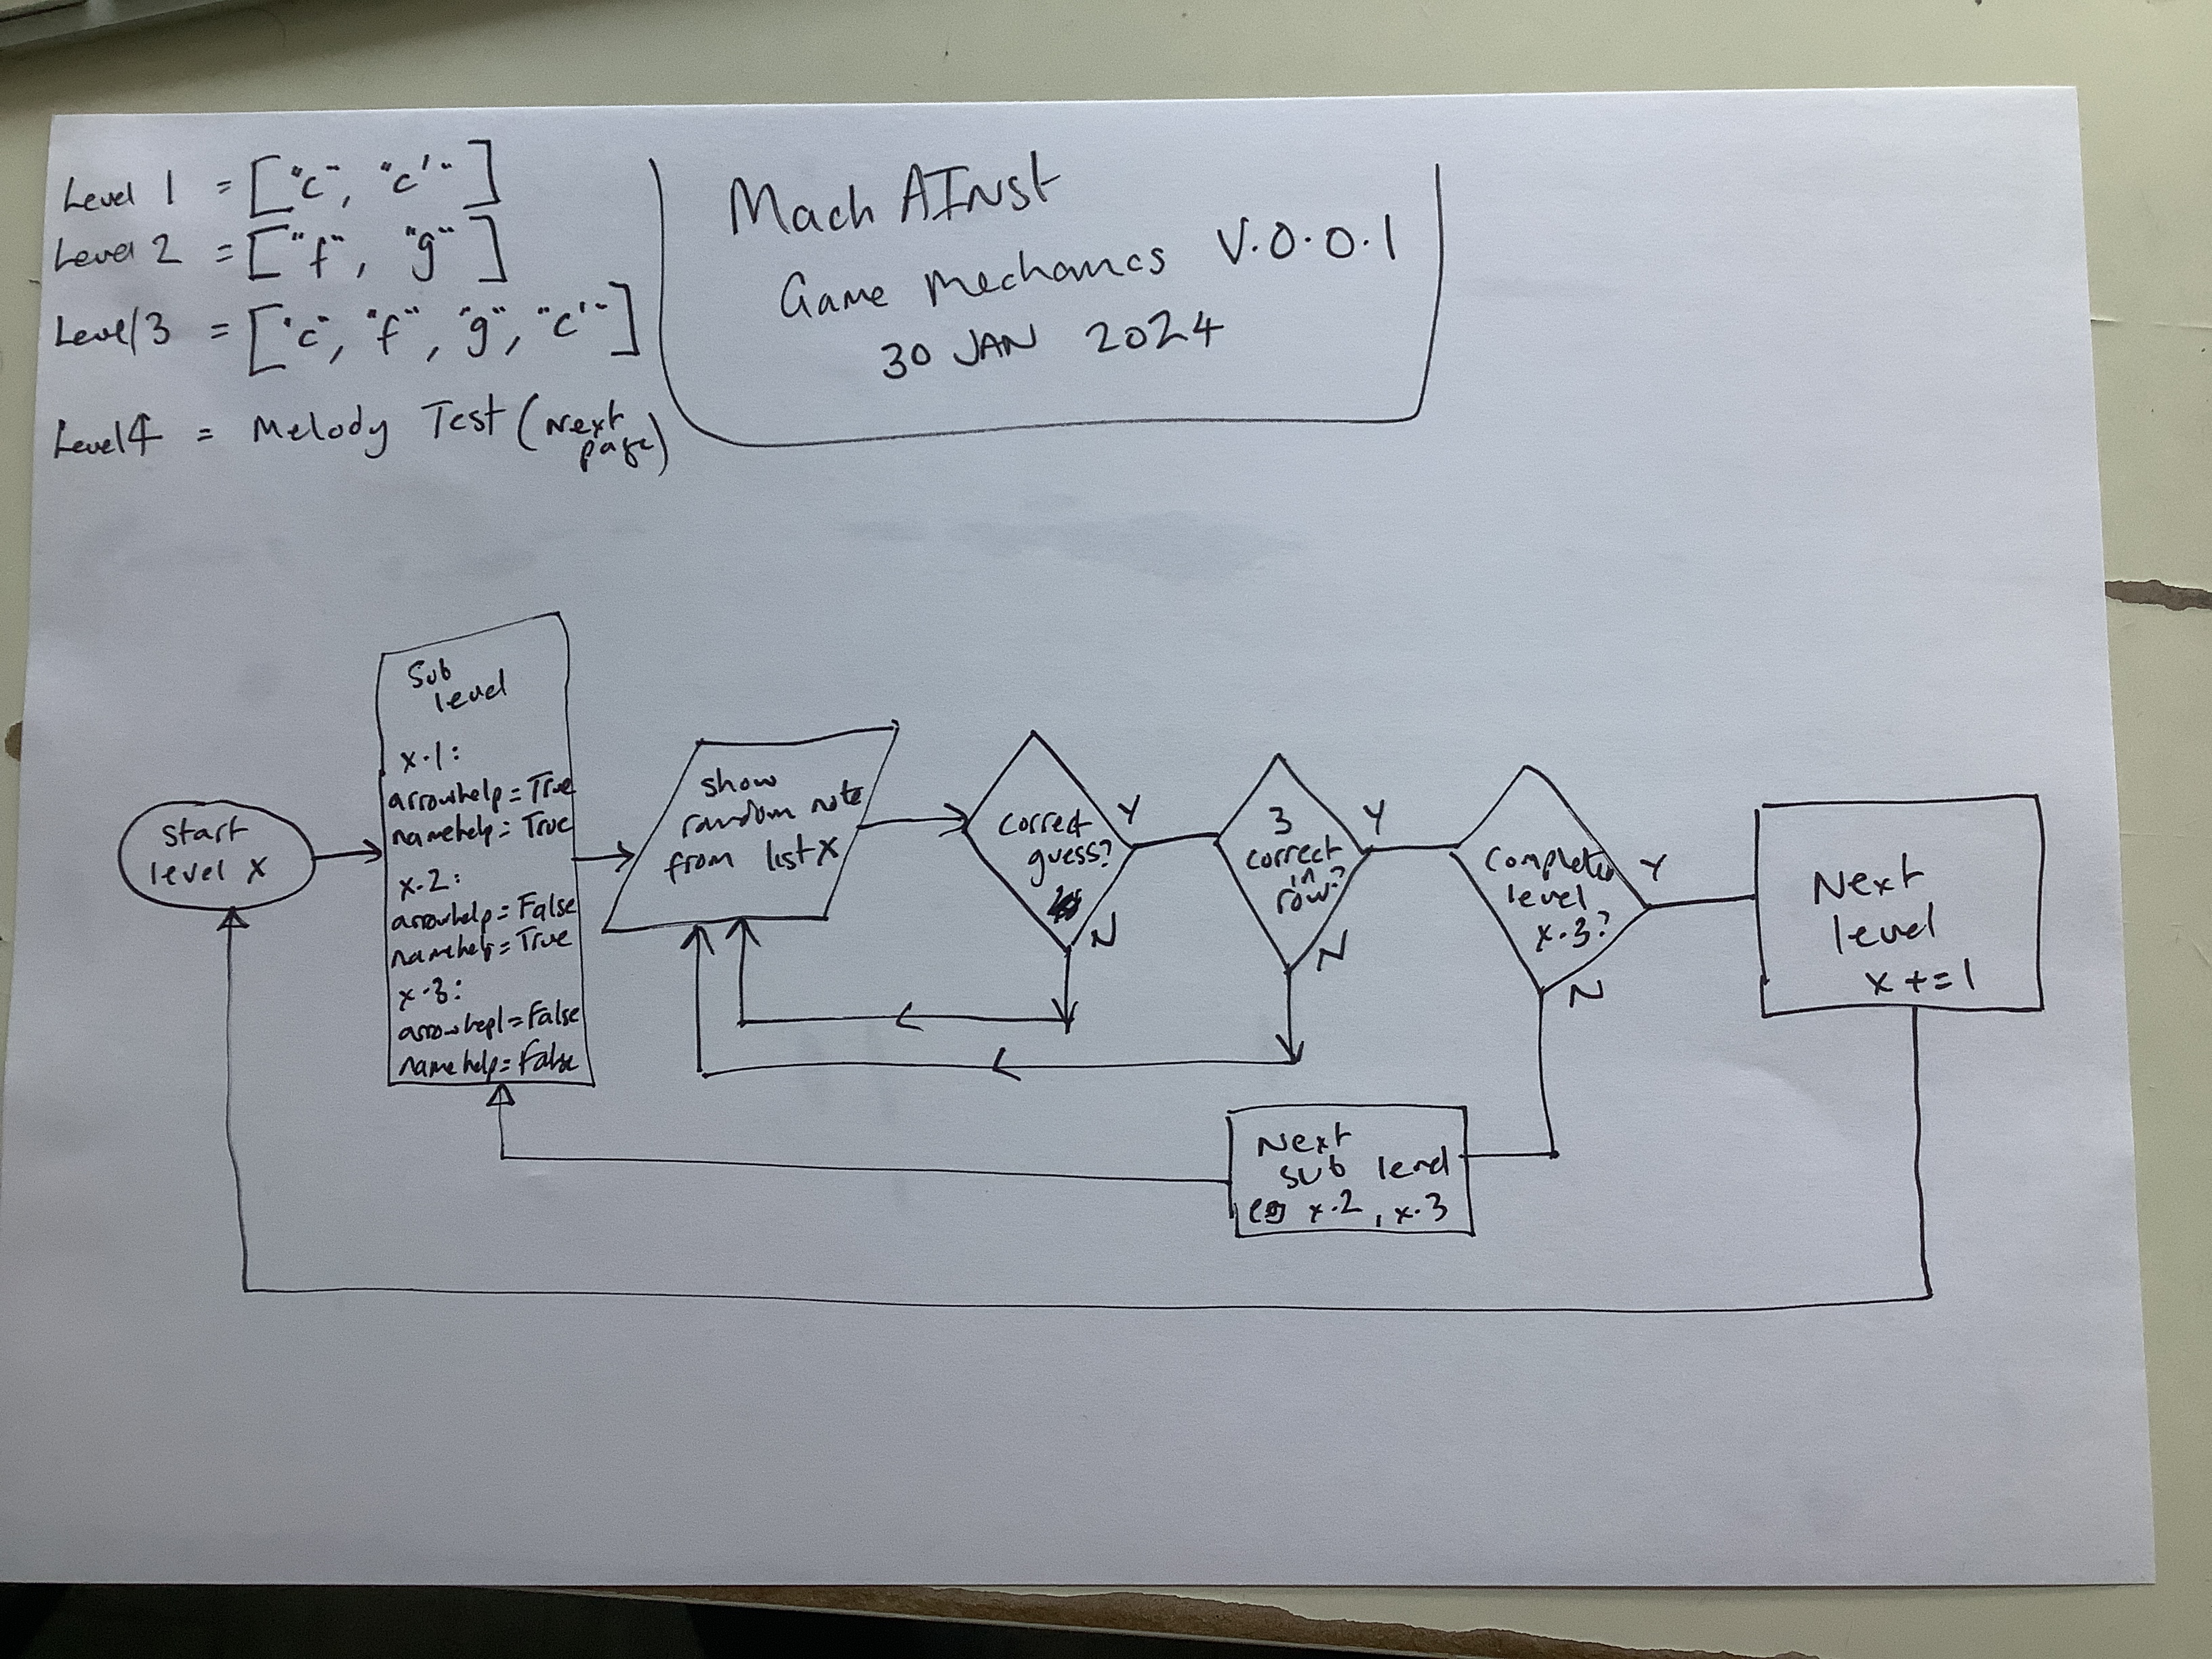 Level 1 = ["c", "c'"]
Level 2 = ["f", "g"]
Level 3 = ["c", "f", "g", "c'"]
Level 4 = Melody Test (Next
page)
Mach AINst
Game Mechanics V.0.0.1
30 JAN 2024
start
level x
Sub
level
x.1:
arrowhelp = True
namehelp = True
x.2:
arrowhelp = False
namehelp = True
x.3:
arrowhepl = False
namehelp = False
show
random note
from list x
correct
guess?
Y
N
3
correct
in
row?
Y
N
Completed
level
x.3?
Y
N
Next
level
x += 1
Next
sub level
eg x.2, x.3